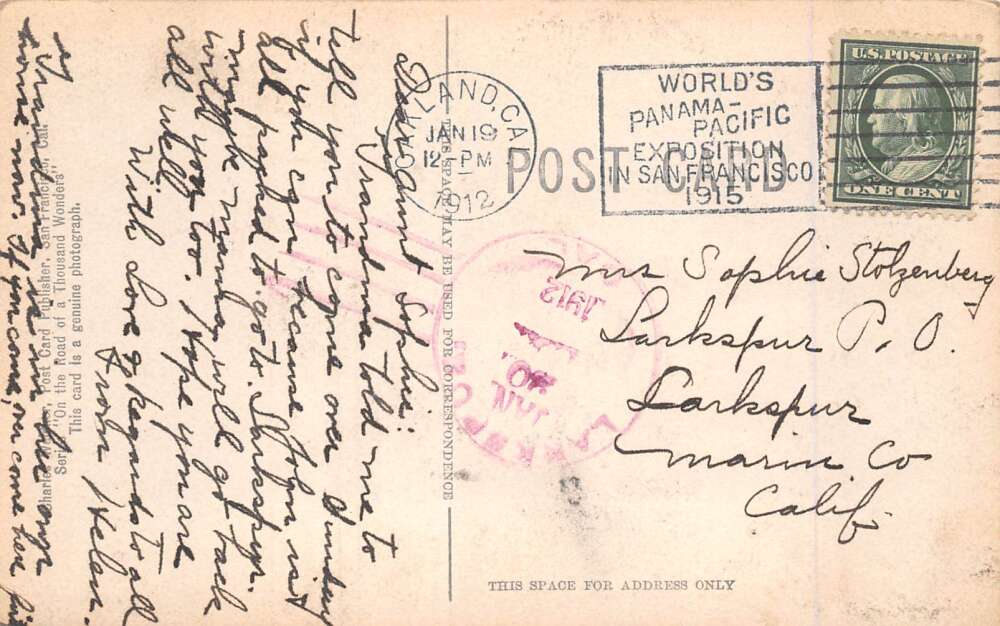 Dear Aunt Sophie:
Grandma told me to
tell you to come over Sunday
if you can because John is
all packed to go to Larkspur.
maybe grandma will go back
with you too. Hope you are
all well.
With Love & Regards to all
From Helen.
Grandma
home now. If you come, come here
Charles Post Card Publisher, San Francisco, Cal.
Series "On the Road of a Thousand Wonders"
This card is a genuine photograph.
THIS SPACE MAY BE USED FOR CORRESPONDENCE
OAKLAND, CAL.
JAN 19
12-PM
1912
WORLD'S
PANAMA-
PACIFIC
EXPOSITION
IN SAN FRANCISCO
1915
POST CARD
U.S. POSTAGE
ONE CENT
LARKSPUR
JAN
20
1912
CAL
Mrs Sophie Stolzenberg
Larkspur P.O.
Larkspur
Marin Co
Calif.
THIS SPACE FOR ADDRESS ONLY